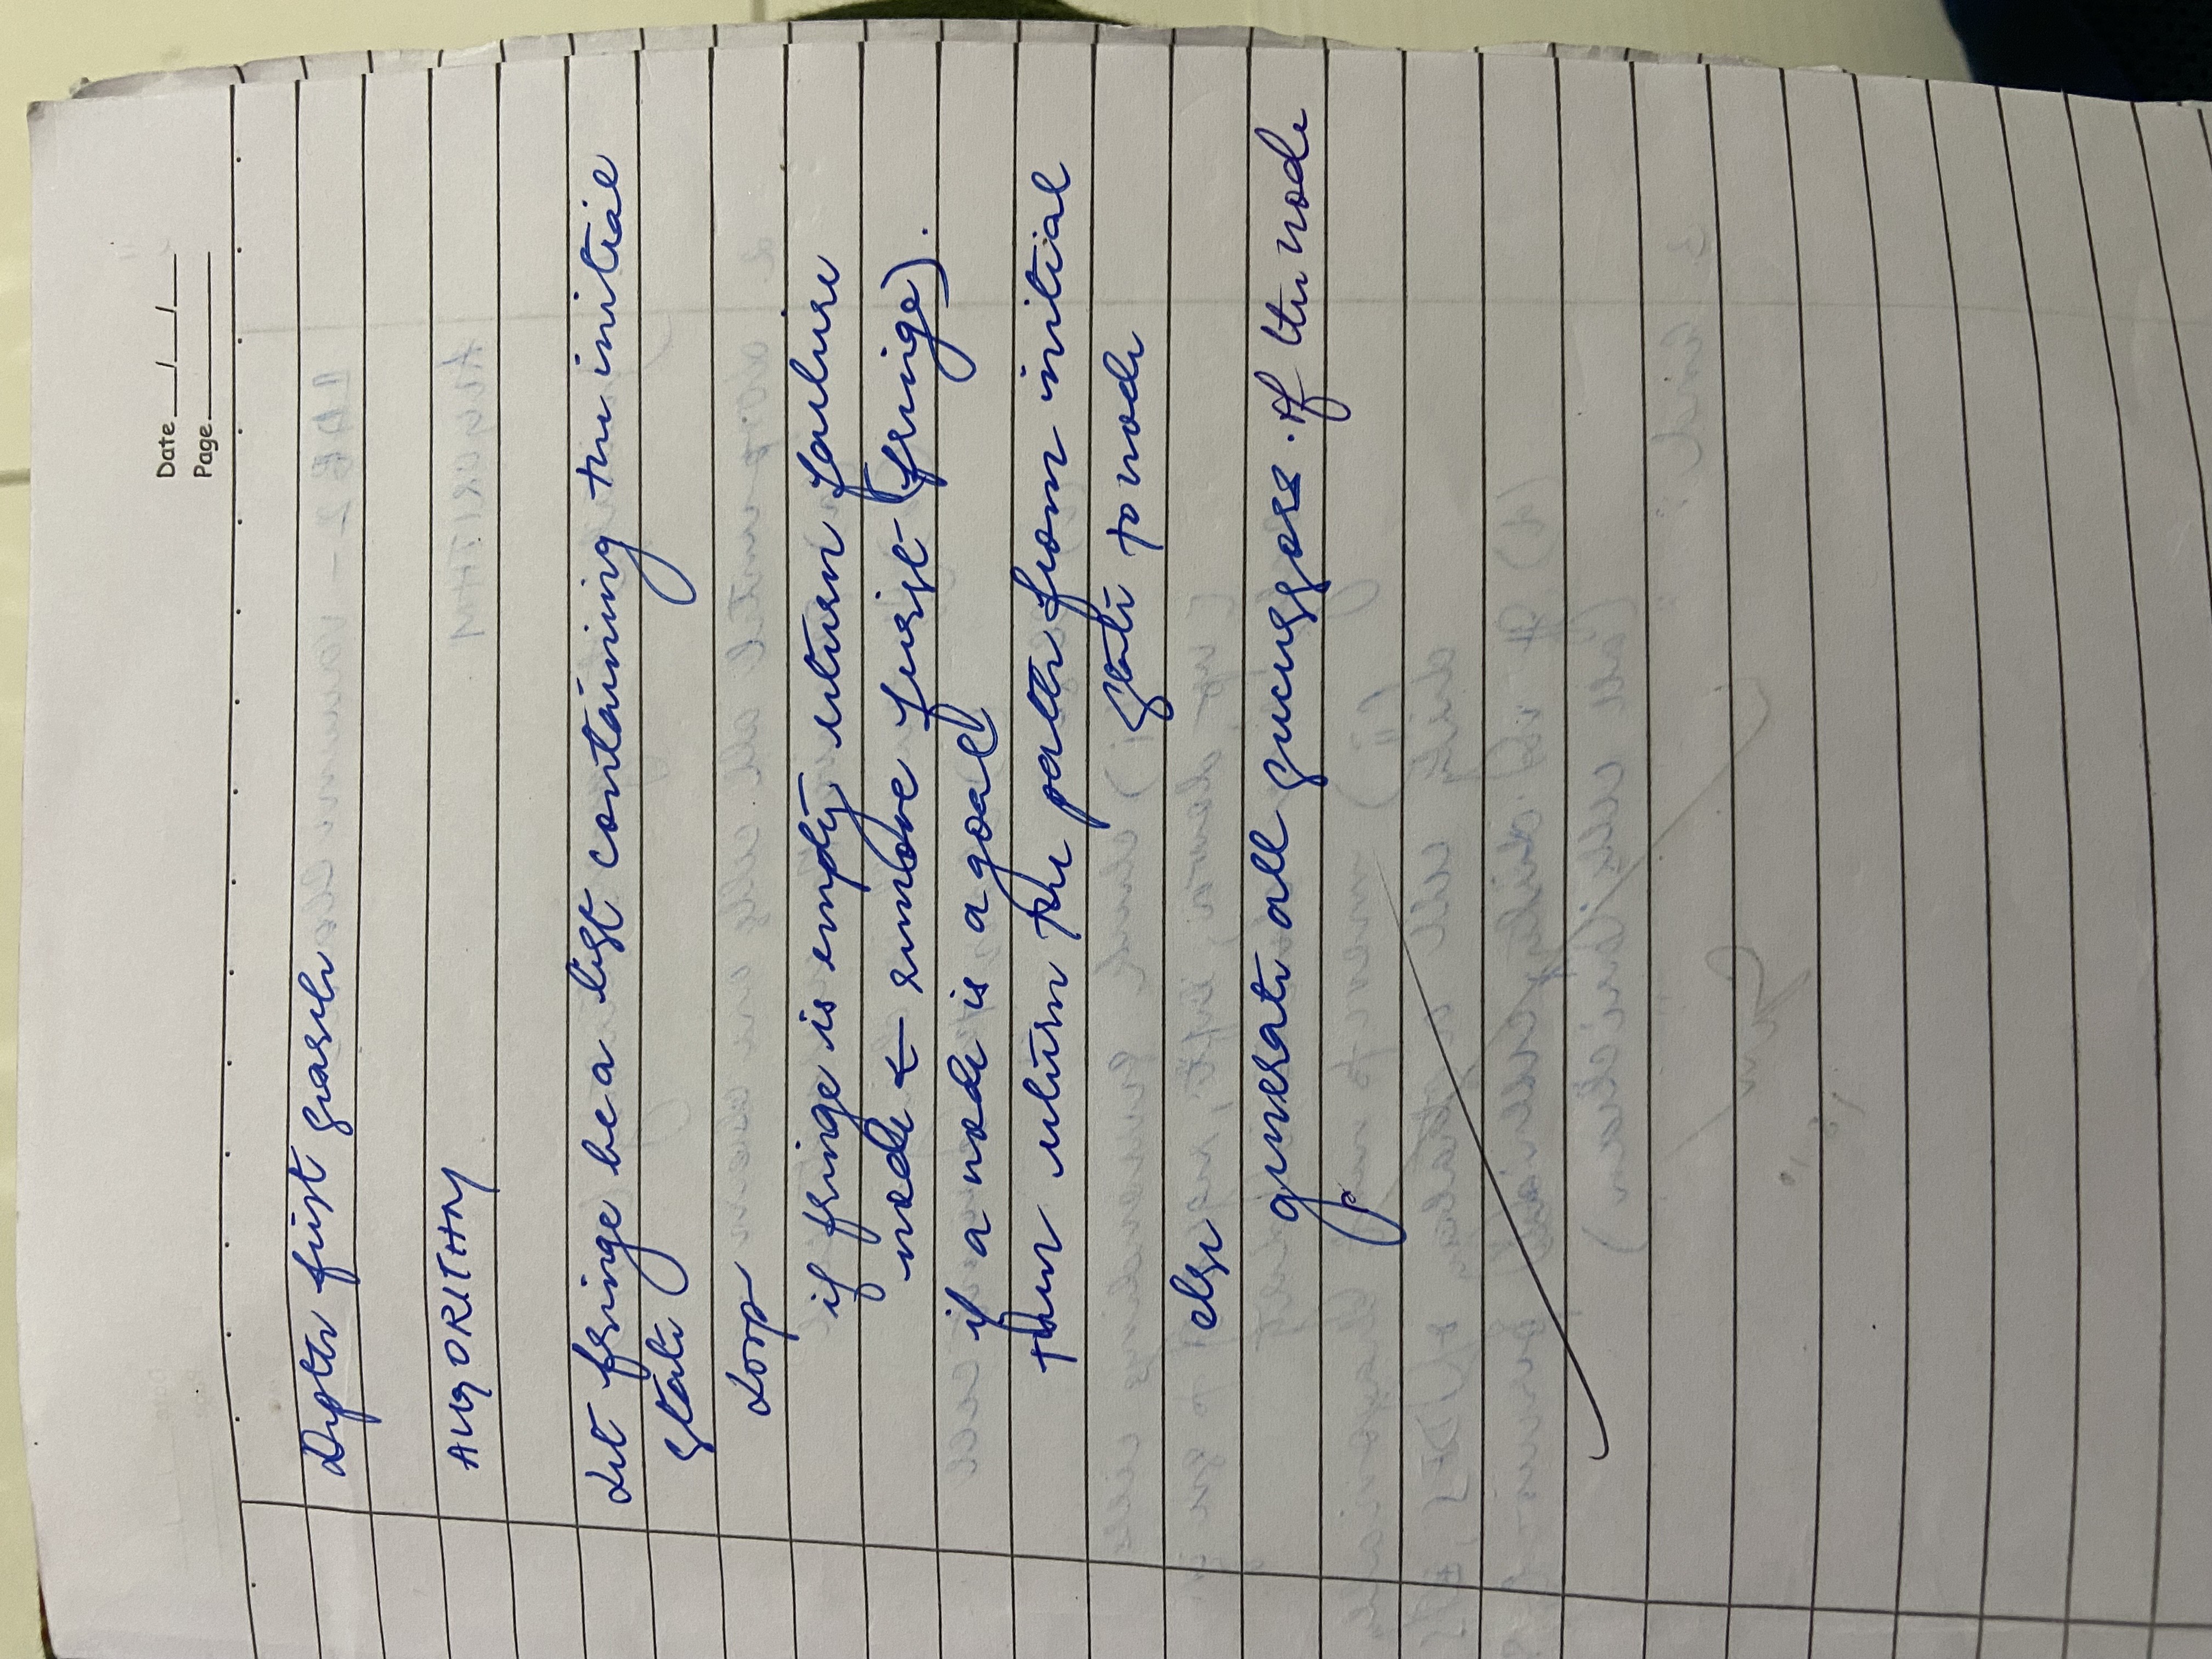 Date __/__/__
Page
Depth first search
ALGORITHM
Let fringe be a list containing the initial
state
Loop
if fringe is empty return failure
node ← remove first (fringe).
if a node is a goal
then return the path from initial
state to node
else
generate all successors of the node